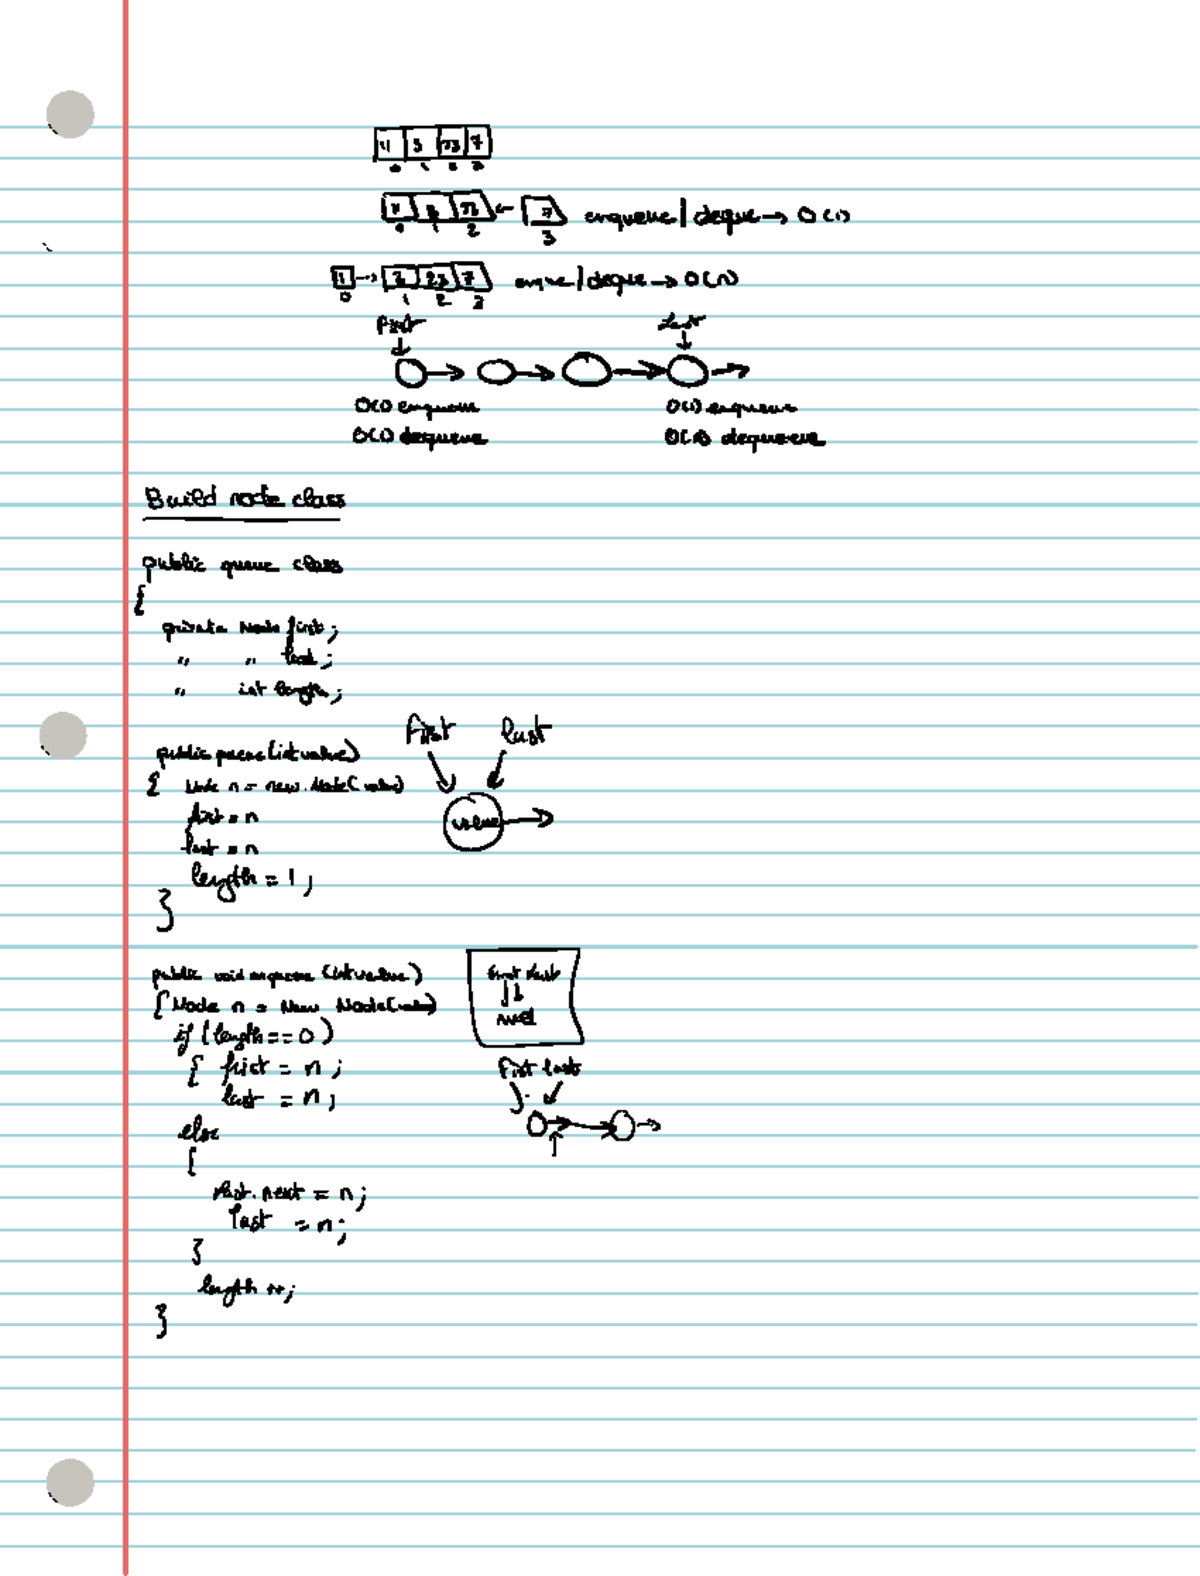 11 3 23 7
0 1 2 3
11 3 23 ← 7 enqueue | deque → O(1)
0 1 2 3
11 → 3 23 7 enque / deque → O(n)
0 1 2 3
First Last
O(1) enqueue O(1) enqueue
O(1) dequeue O(n) dequeue
Build node class
public queue class
{
private Node first;
" " last;
" int length;
First last
public queue(int value)
{ Node n = new Node(value)
first = n value
last = n
length = 1;
}
public void enqueue (int value) first last
{ Node n = New Node(value)
null
if (length == 0)
{ first = n; First last
last = n;
else
{
last.next = n;
last = n;
}
length ++;
}